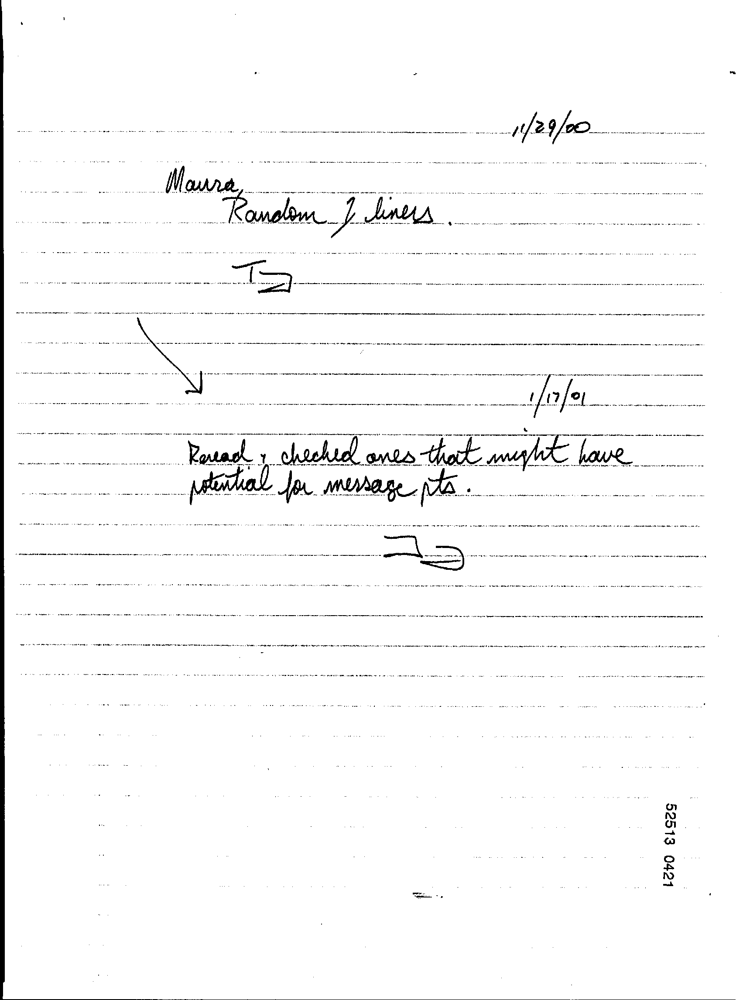 11/29/00
Maura,
Random 1 liners.
1/17/01
Reread & checked ones that might have
potential for message pts.
52513 0421